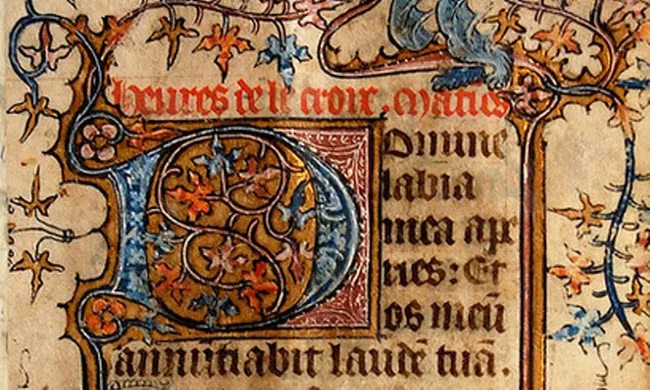 heures de le croix. matines
Domine
labia
mea ape
ries: Et
os meū
annutiabit laudē tuā.